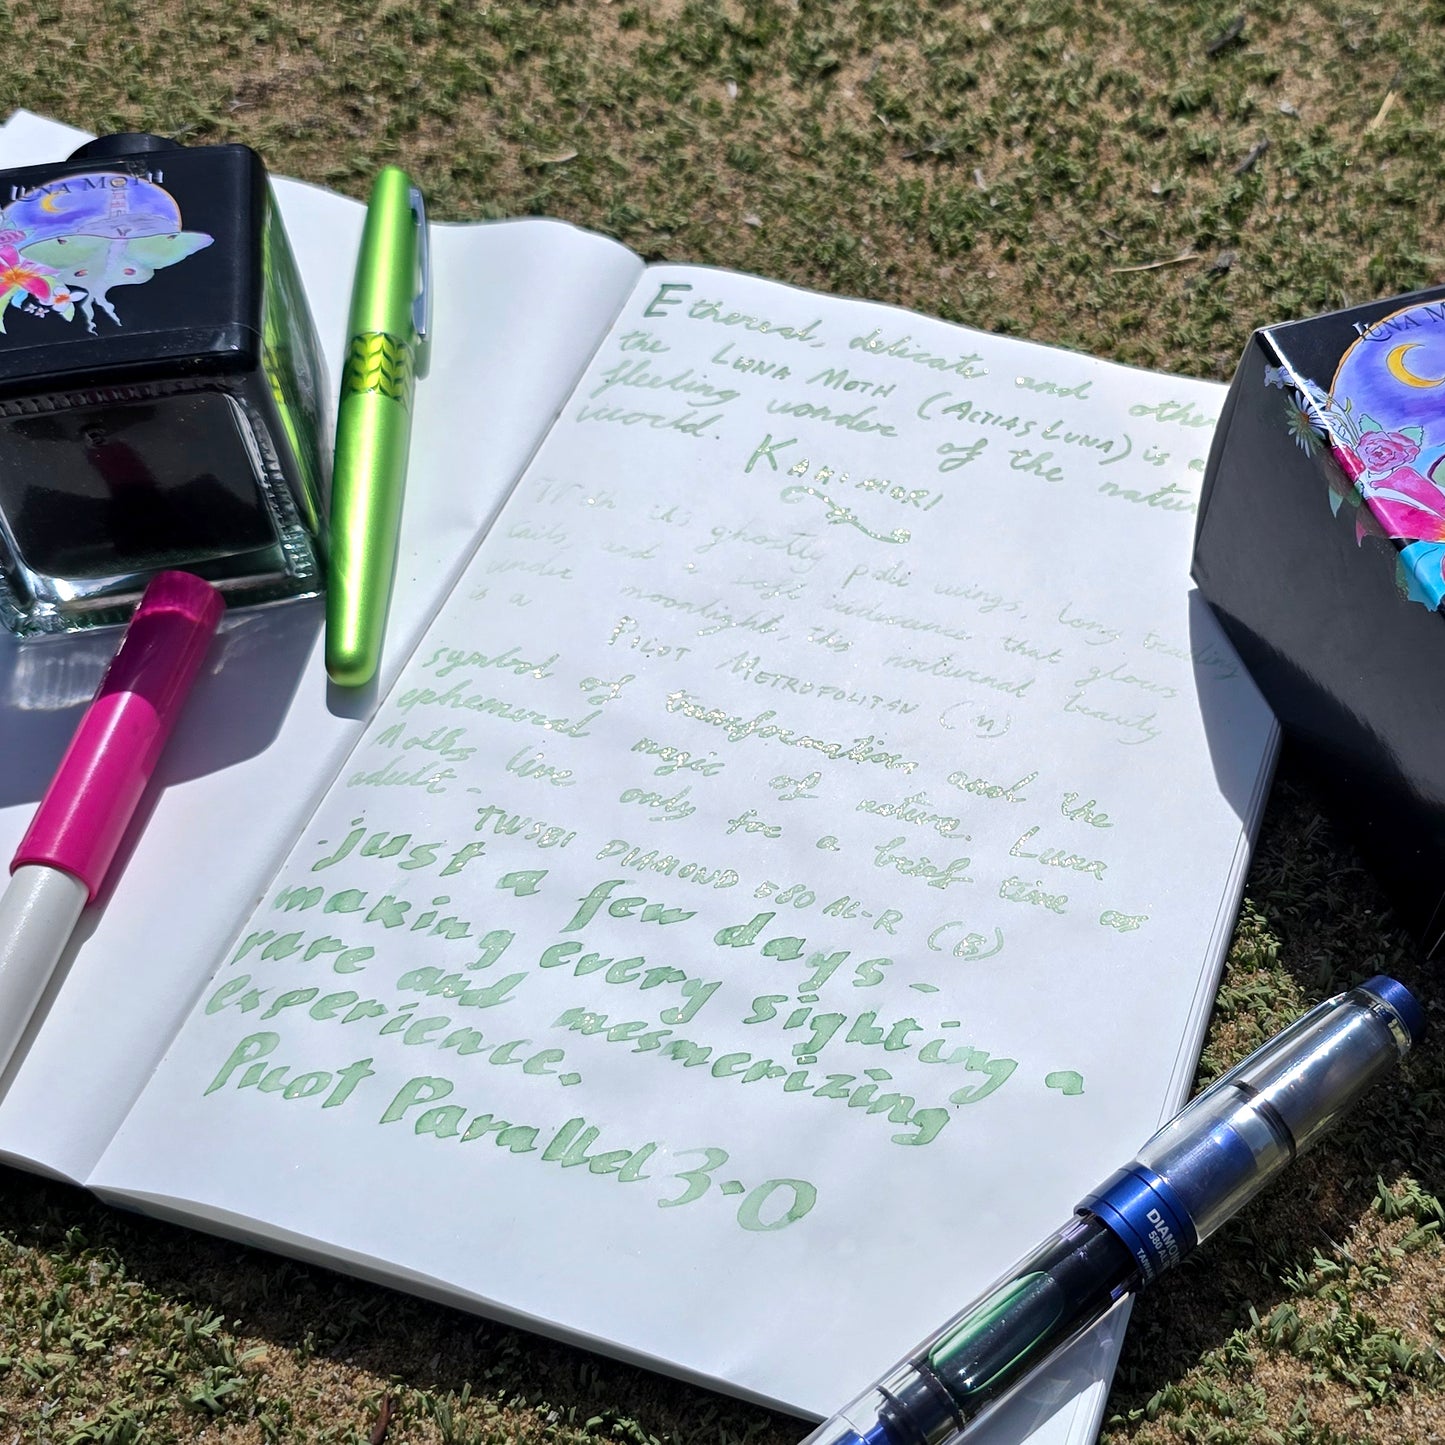 LUNA MOTH
Ethereal, delicate and other
the LUNA MOTH (ACTIAS LUNA) is a
fleeting wonder of the natur
world. KAKIMORI
With it's ghostly pale wings, long trailing
tails, and a soft iridescence that glows
under moonlight, this nocturnal beauty
is a PILOT METROPOLITAN (M)
symbol of transformation and the
ephemeral magic of nature. Luna
Moths live only for a brief time as
adult-
TWSBI DIAMOND 580 AL-R (B)
-just a few days-
making every sighting a
rare and mesmerizing
experience.
Pilot Parallel 3.0
LUNA MO
DIAMON
580 AL
TAIWAN